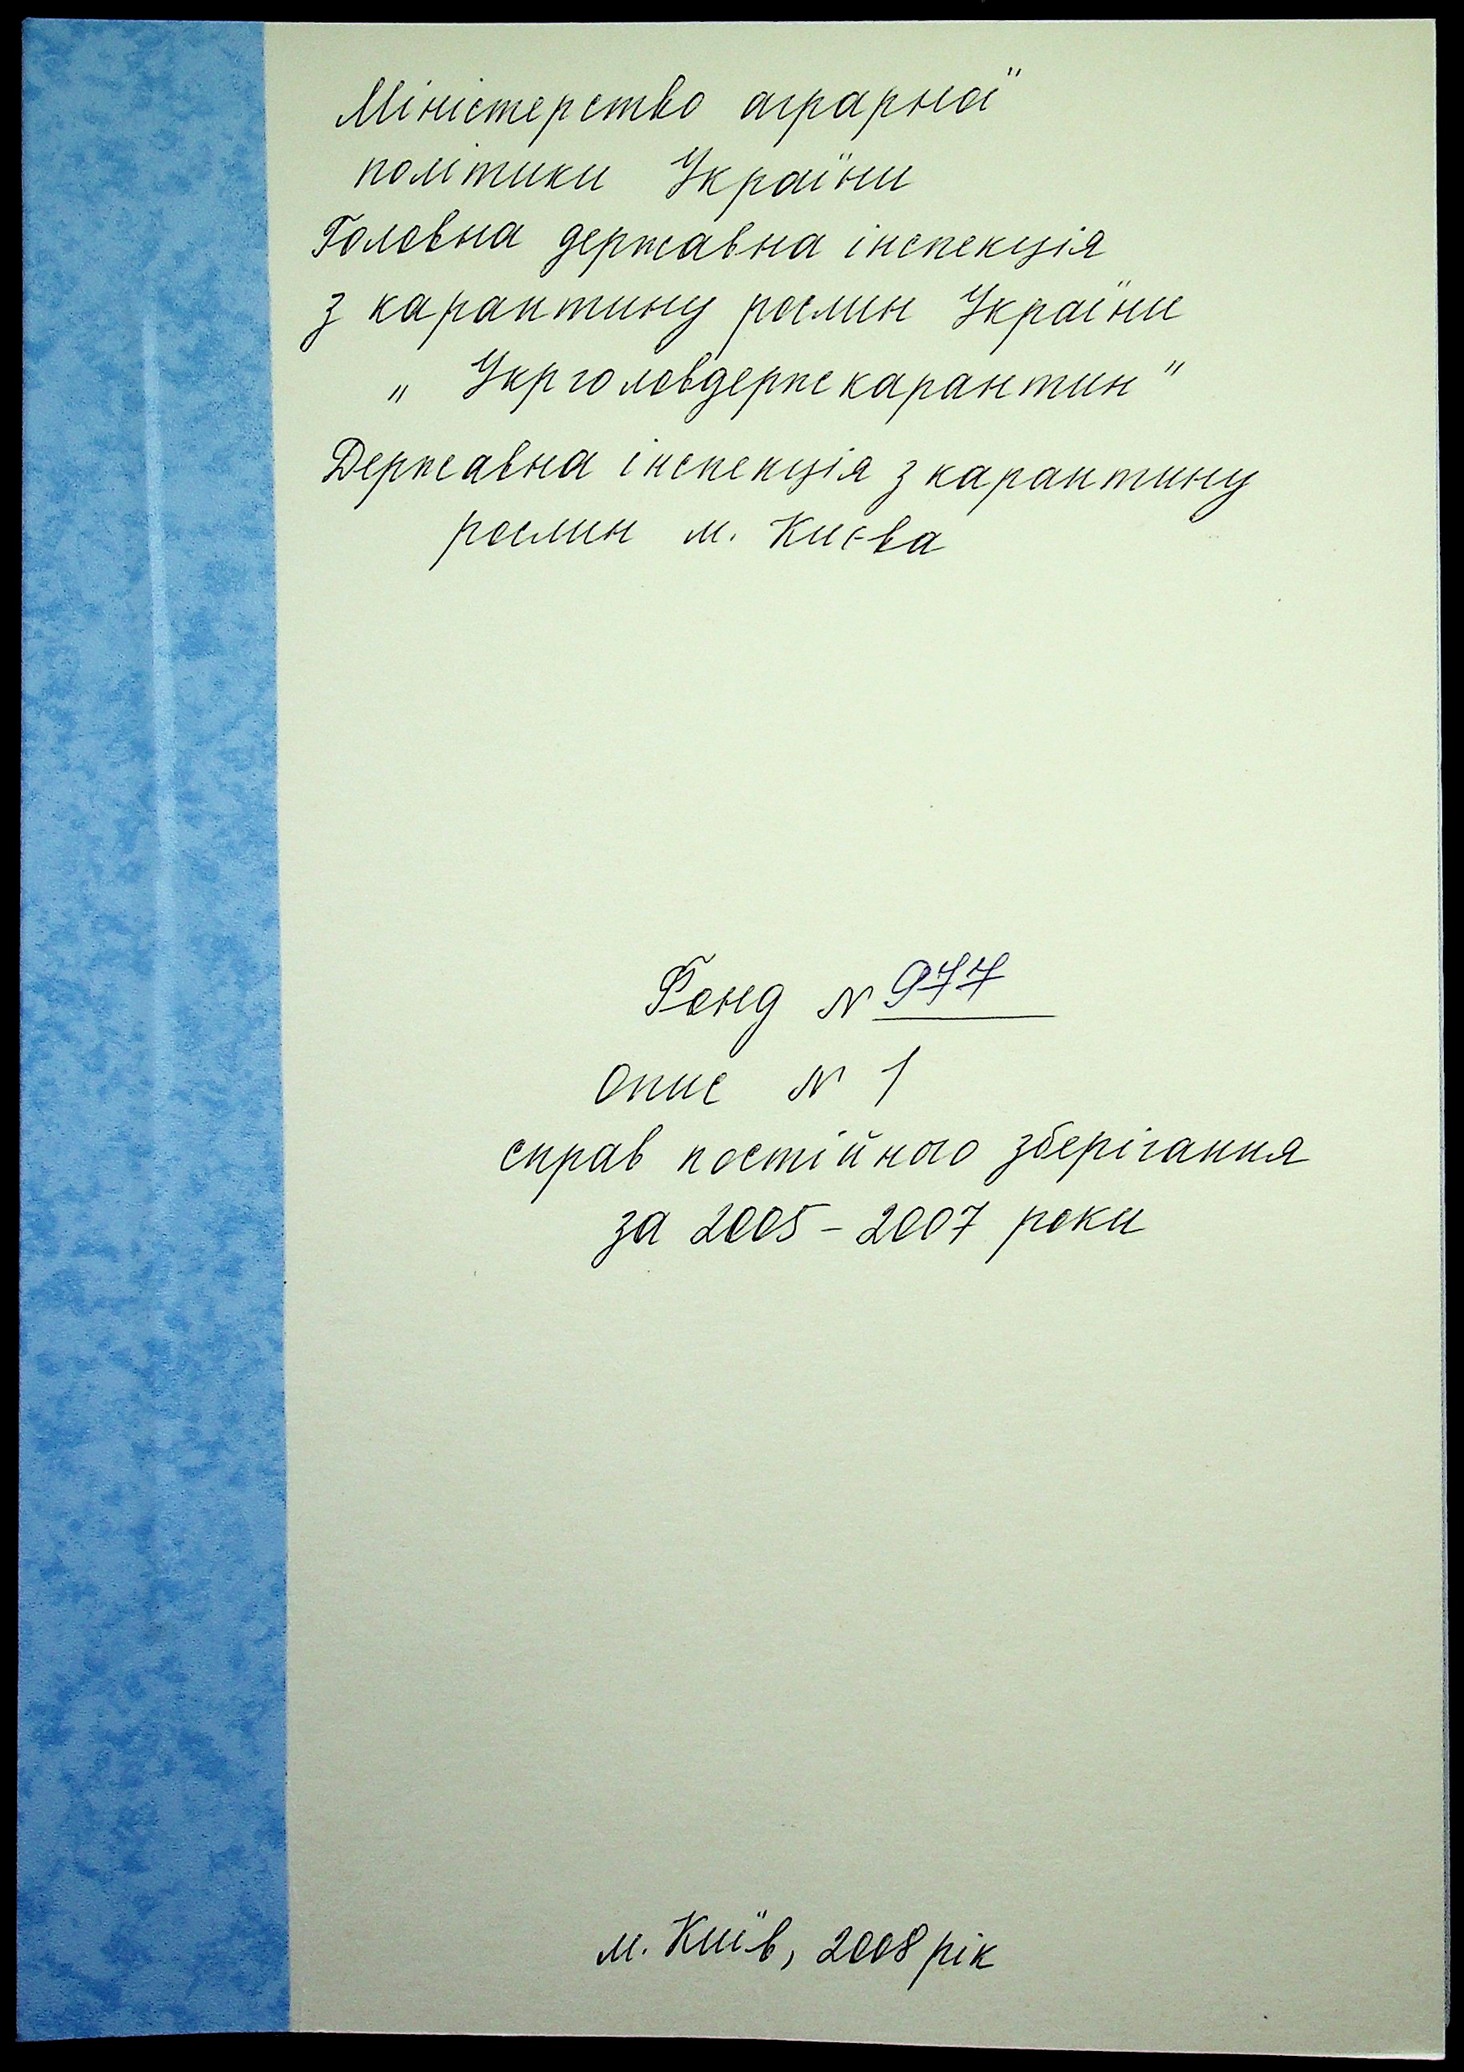 Міністерство аграрної
політики України
Головна державна інспекція
з карантину рослин України
„ Укрголовдержкарантин "
Державна інспекція з карантину
рослин м. Києва
Фонд N 977
опис N 1
справ постійного зберігання
за 2005 - 2007 роки
м. Київ, 2008 рік